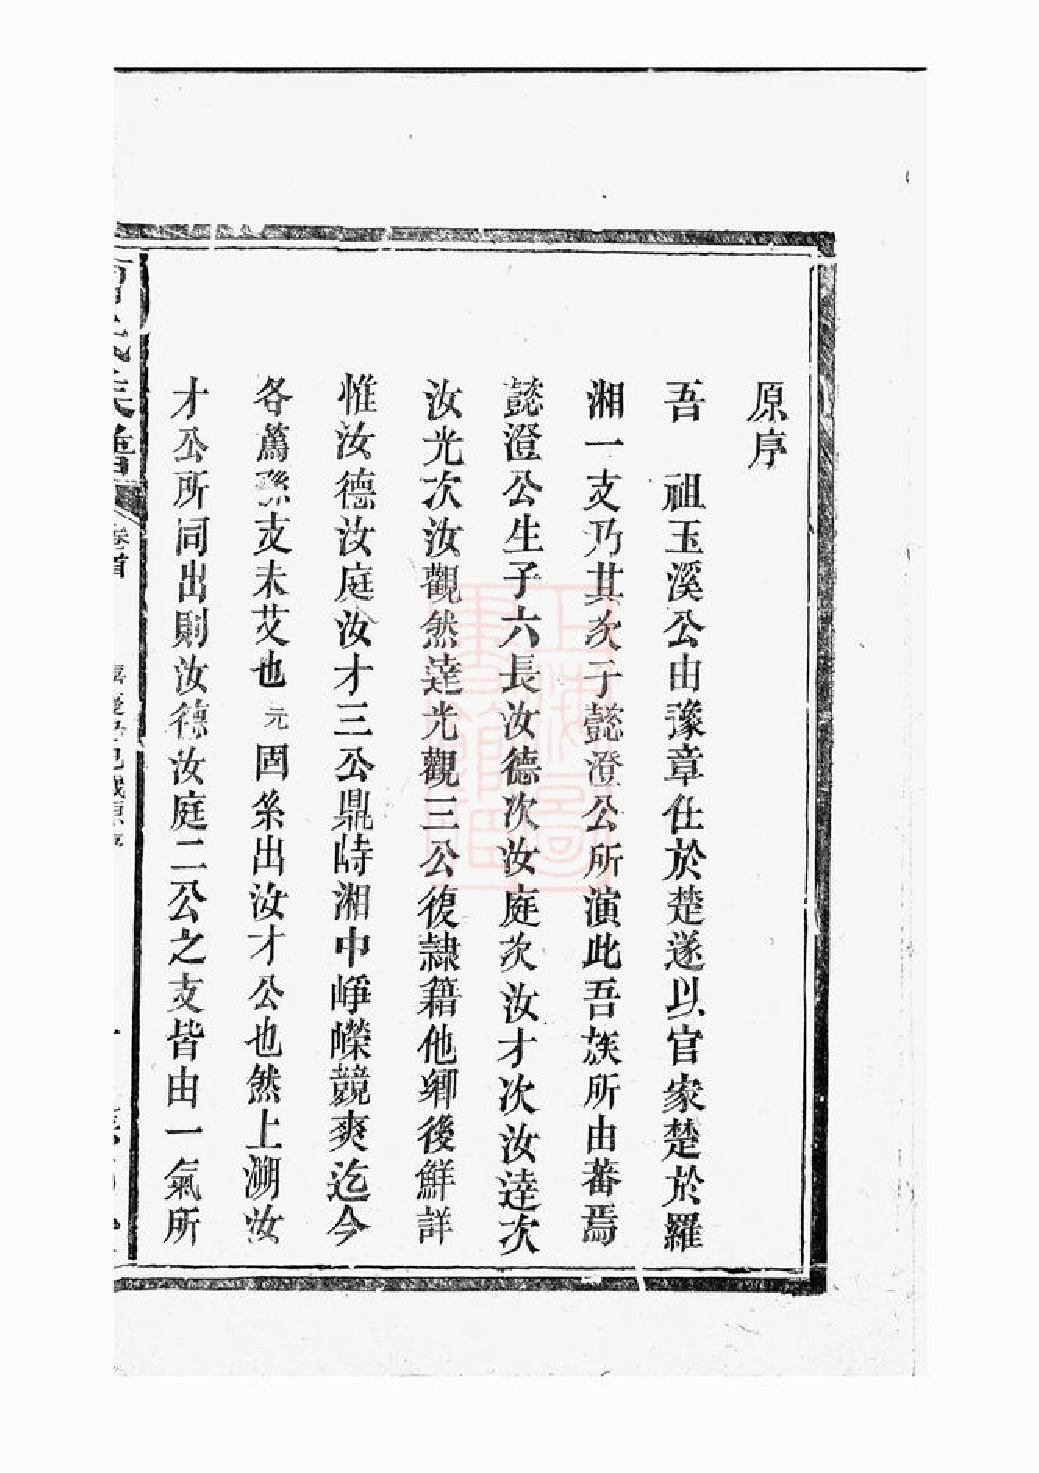 原序
吾　祖玉溪公由豫章仕於楚遂以官家楚於羅
湘一支乃其次子懿澄公所演此吾族所由蕃焉
懿澄公生子六長汝德次汝庭次汝才次汝達次
汝光次汝觀然達光觀三公復隸籍他鄉後鮮詳
惟汝德汝庭汝才三公鼎峙湘中崢嶸競爽迄今
各蔿孫支未艾也元固系出汝才公也然上溯汝
才公所同出則汝德汝庭二公之支皆由一氣所
氏族譜
卷首
上海圖書館藏